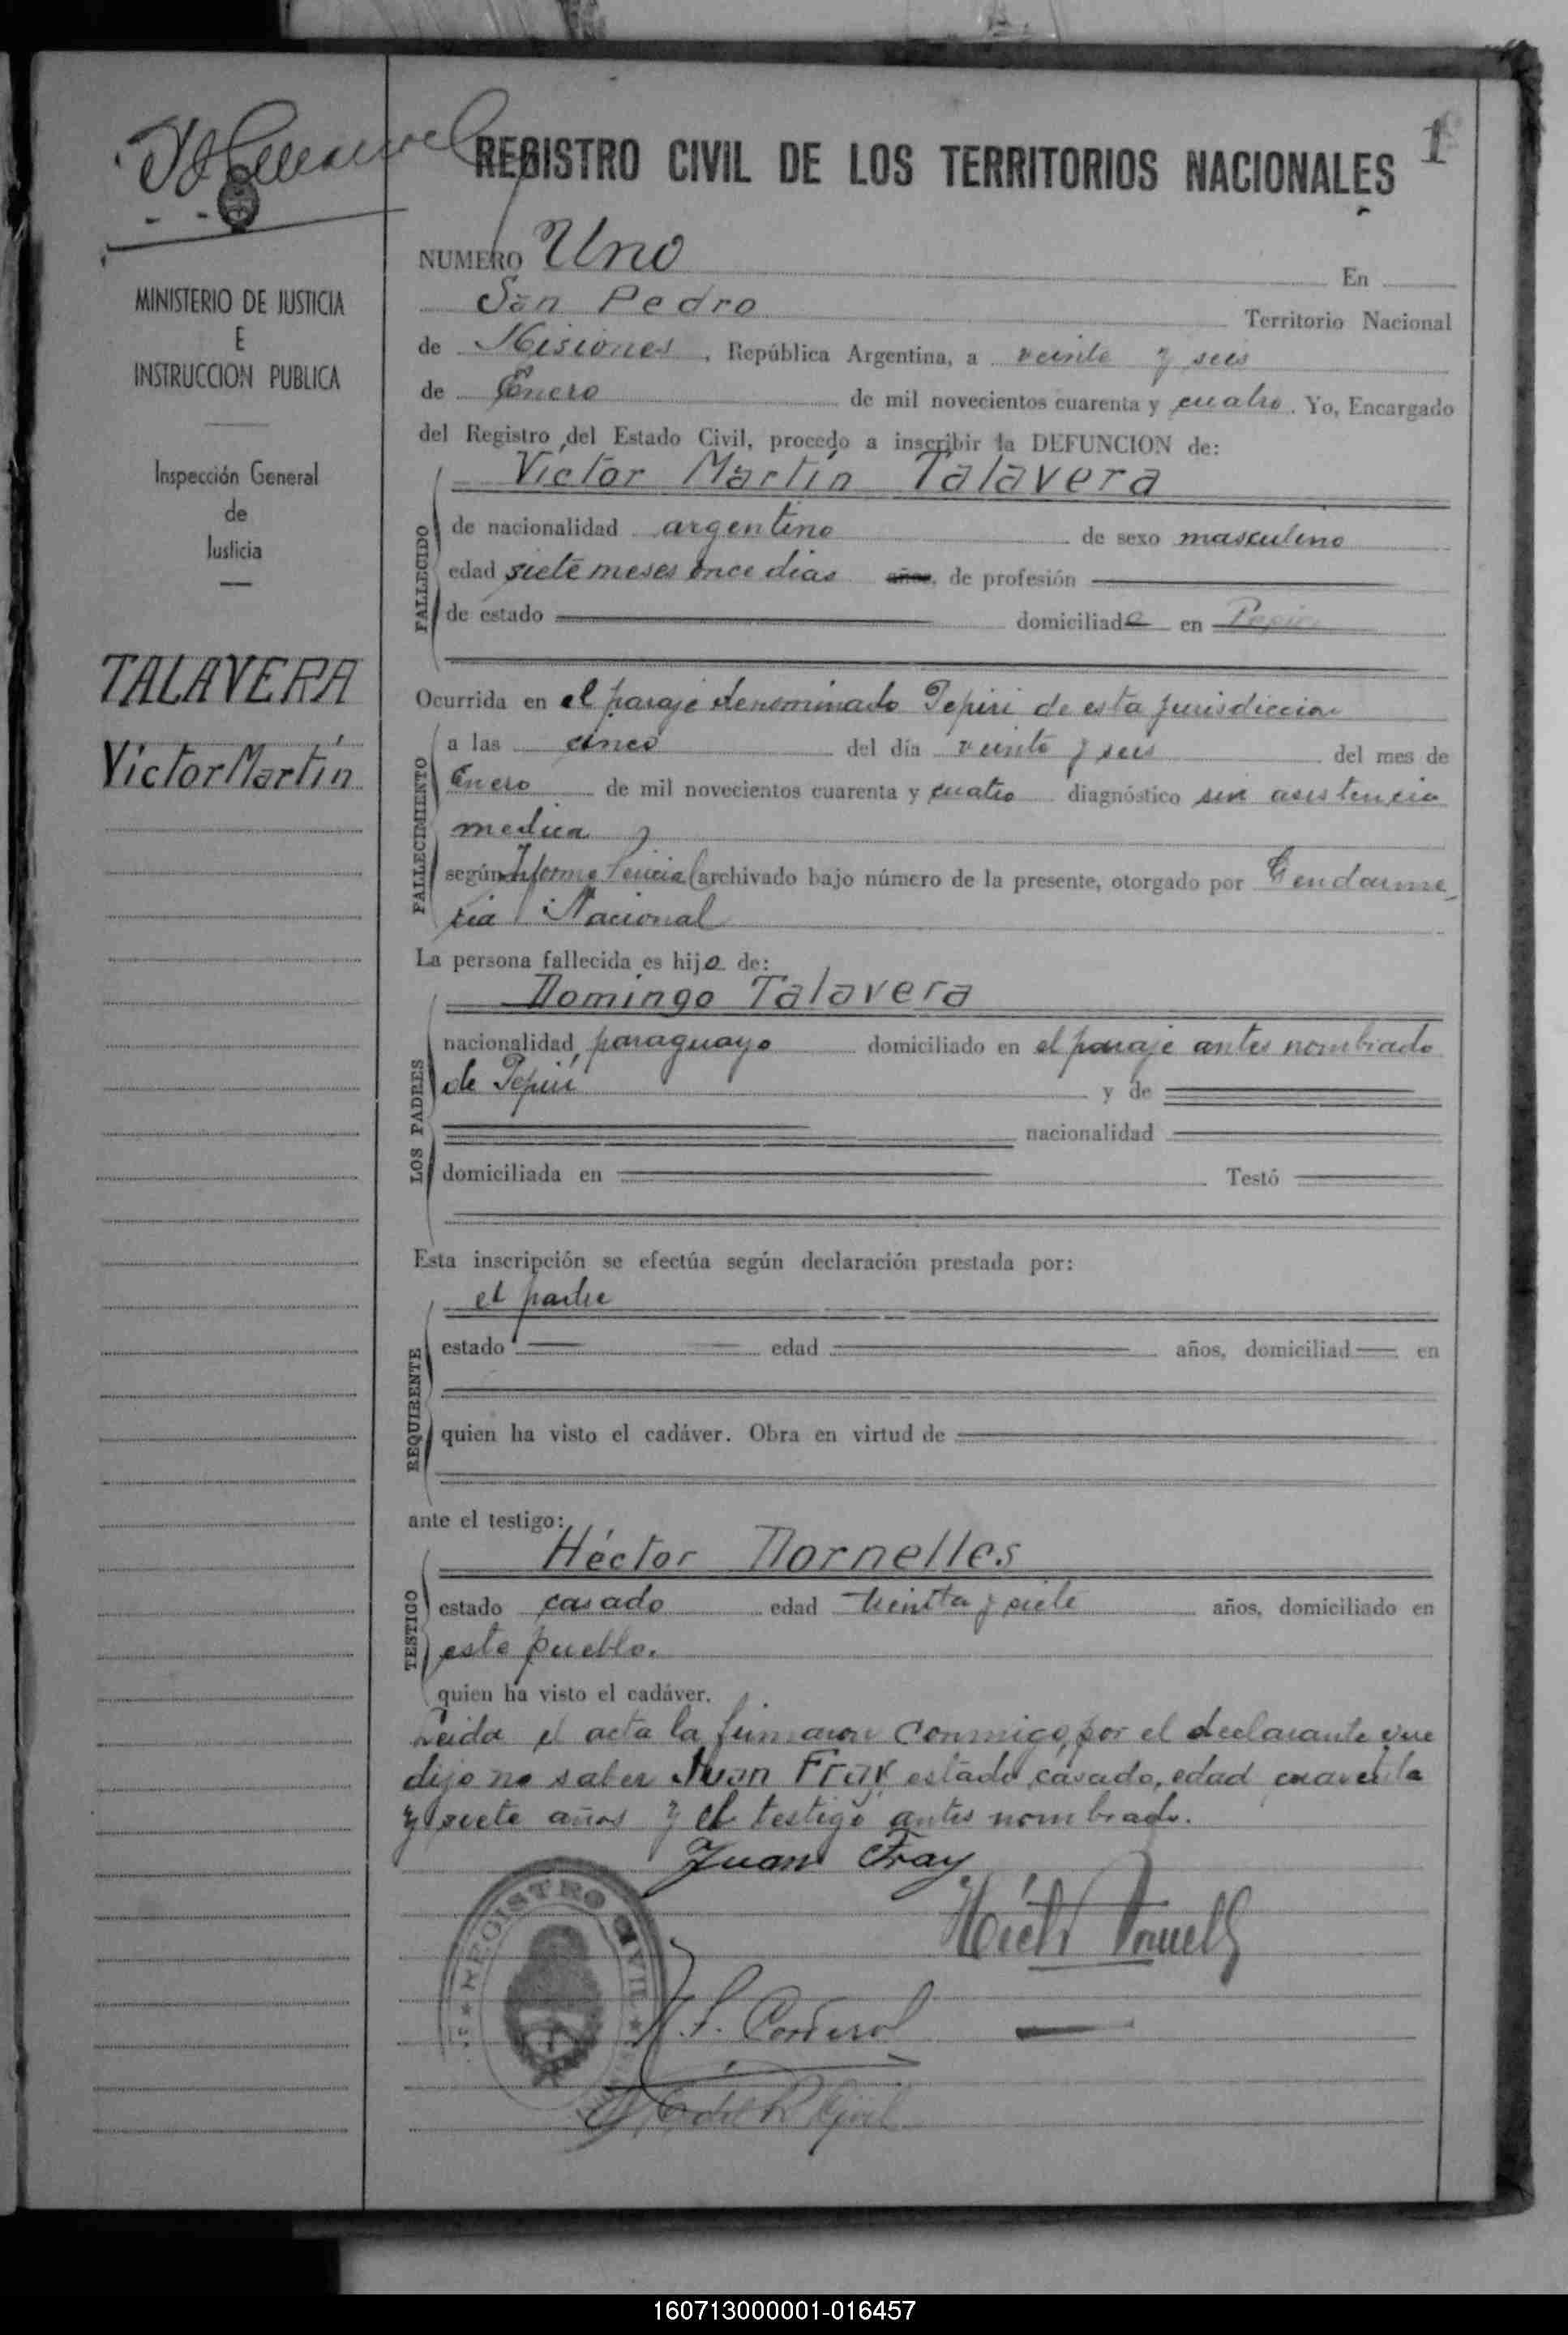 REGISTRO CIVIL DE LOS TERRITORIOS NACIONALES
1
NUMERO Uno En
San Pedro Territorio Nacional
de Misiones, República Argentina, a veinte y seis
de Enero de mil novecientos cuarenta y cuatro. Yo, Encargado
del Registro del Estado Civil, procedo a inscribir la DEFUNCION de:
Víctor Martín Talavera
FALLECIDO
de nacionalidad argentino de sexo masculino
edad siete meses once dias años, de profesión
de estado domiciliado en Pepiri
Ocurrida en el paraje denominado Pepiri de esta jurisdiccion
FALLECIMIENTO
a las cinco del día veinte y seis del mes de
Enero de mil novecientos cuarenta y cuatro diagnóstico sin asistencia
medica y
según Informe archivado bajo número de la presente, otorgado por Gendarme
ria Nacional
La persona fallecida es hijo de:
Domingo Talavera
LOS PADRES
nacionalidad paraguayo domiciliado en el paraje antes nombrado
de Pepiri y de
nacionalidad
domiciliada en Testó
Esta inscripción se efectúa según declaración prestada por:
el padre
REQUIRENTE
estado edad años, domiciliad en
quien ha visto el cadáver. Obra en virtud de
ante el testigo:
Héctor Dornelles
TESTIGO
estado casado edad treinta y siete años, domiciliado en
este pueblo.
quien ha visto el cadáver.
Leida el acta la firmaron conmigo, por el declarante que
dijo no saber Juan Fray estado casado, edad cuarenta
y siete años y el testigo antes nombrado.
Juan Fray
REGISTRO CIVIL
MINISTERIO DE JUSTICIA
E
INSTRUCCION PUBLICA
Inspección General
de
Justicia
TALAVERA
Víctor Martín
160713000001-016457